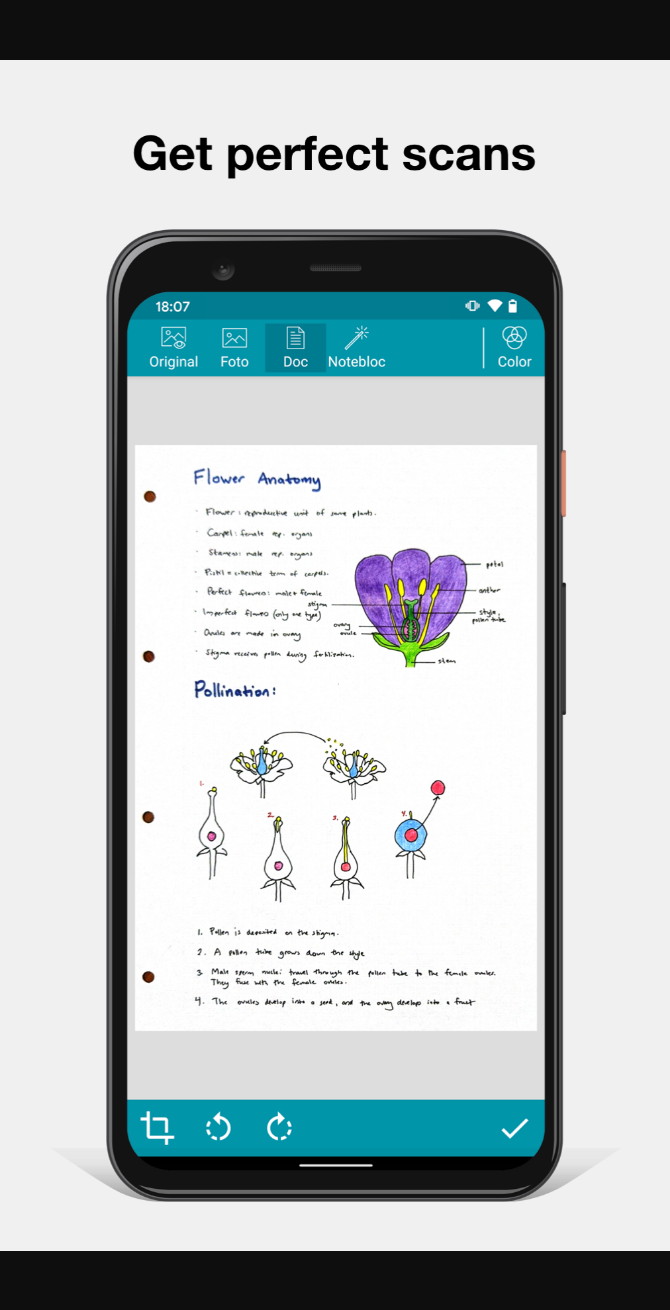 Get perfect scans
18:07
Original Foto Doc Notebloc Color
Flower Anatomy
· Flower: reproductive unit of some plants.
· Carpel: female rep. organs
· Stamens: male rep. organs
· Pistil = collective term of carpels.
· Perfect flowers: male + female
· Imperfect flowers (only one type)
· Ovules are made in ovary
· Stigma receives pollen during fertilization.
petal
anther
stigma
style,
pollen tube
ovary
ovule
stem
Pollination:
1.
2.
3.
4.
1. Pollen is deposited on the stigma.
2. A pollen tube grows down the style
3. Male sperm travel through the pollen tube to the female ovules.
They fuse with the female ovules.
4. The ovules develop into a seed, and the ovary develops into a fruit